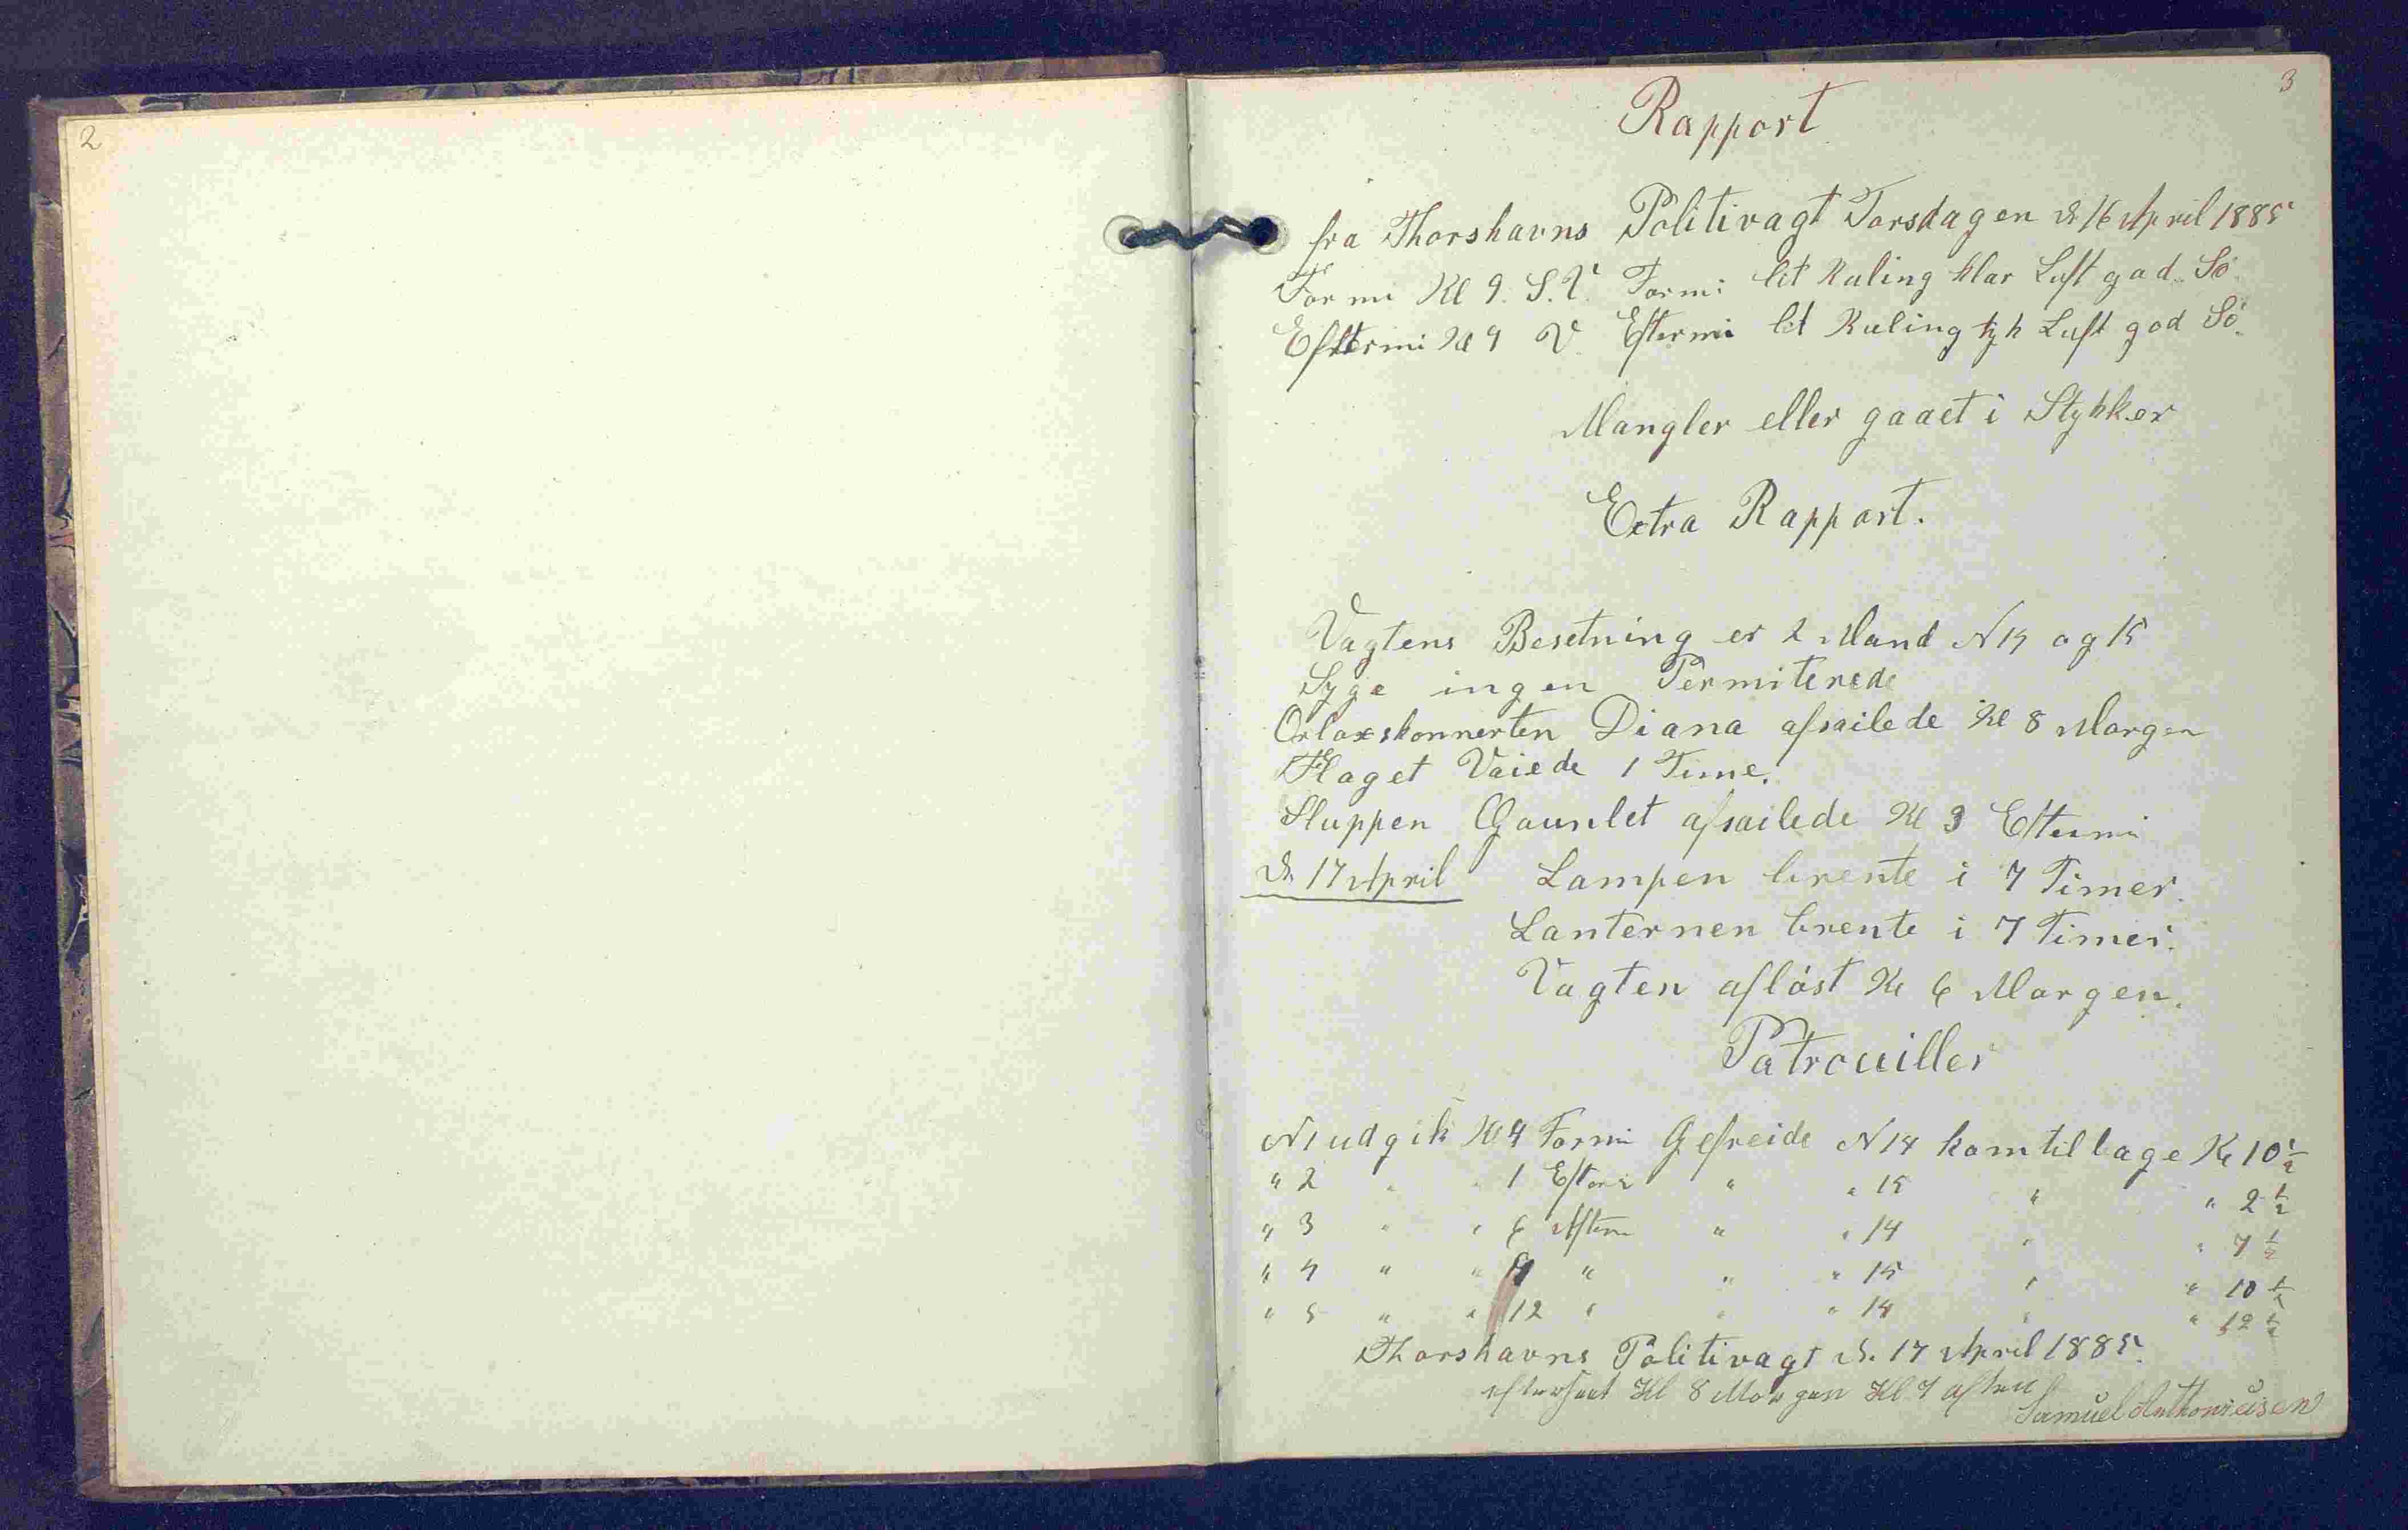 2
3
Rapport
fra Thorshavns Politivagt Torsdagen d. 16 April 1885
Formi Kl 9. S.V. Formi let Kuling klar Luft god Sö
Eftermi Kl 4 V. Eftermi let Kuling tyk Luft god Sö.
Mangler eller gaaet i Stykker
Extra Rapport.
Vagtens Besetning er 2 Mand N 14 og 15
Syge ingen Permiterede
Orloxskonnerten Diana afsailede Kl 8 Morgen
Flaget Vaiede 1 Time.
Sluppen Gaunlet afsailede Kl 3 Eftermi
d. 17 April Lampen brente i 7 Timer.
Lanternen brente i 7 Timer.
Vagten aflöst Kl 6 Morgen.
Patrouiller
N 1 udgik Kl 9 Formi Gefreide N 14 kom tilbage Kl 10 1/2
" 2 " " 1 Efterm " " 15 " " 2 1/2
" 3 " " 6 Aften " " 14 " " 7 1/2
" 4 " " 9 " " " 15 " " 10 1/2
" 5 " " 12 " " " 14 " " 12 1/2
Thorshavns Politivagt d. 17 April 1885.
Kl 8 Morgen Kl 7 aften
Samuel Anthoniusen